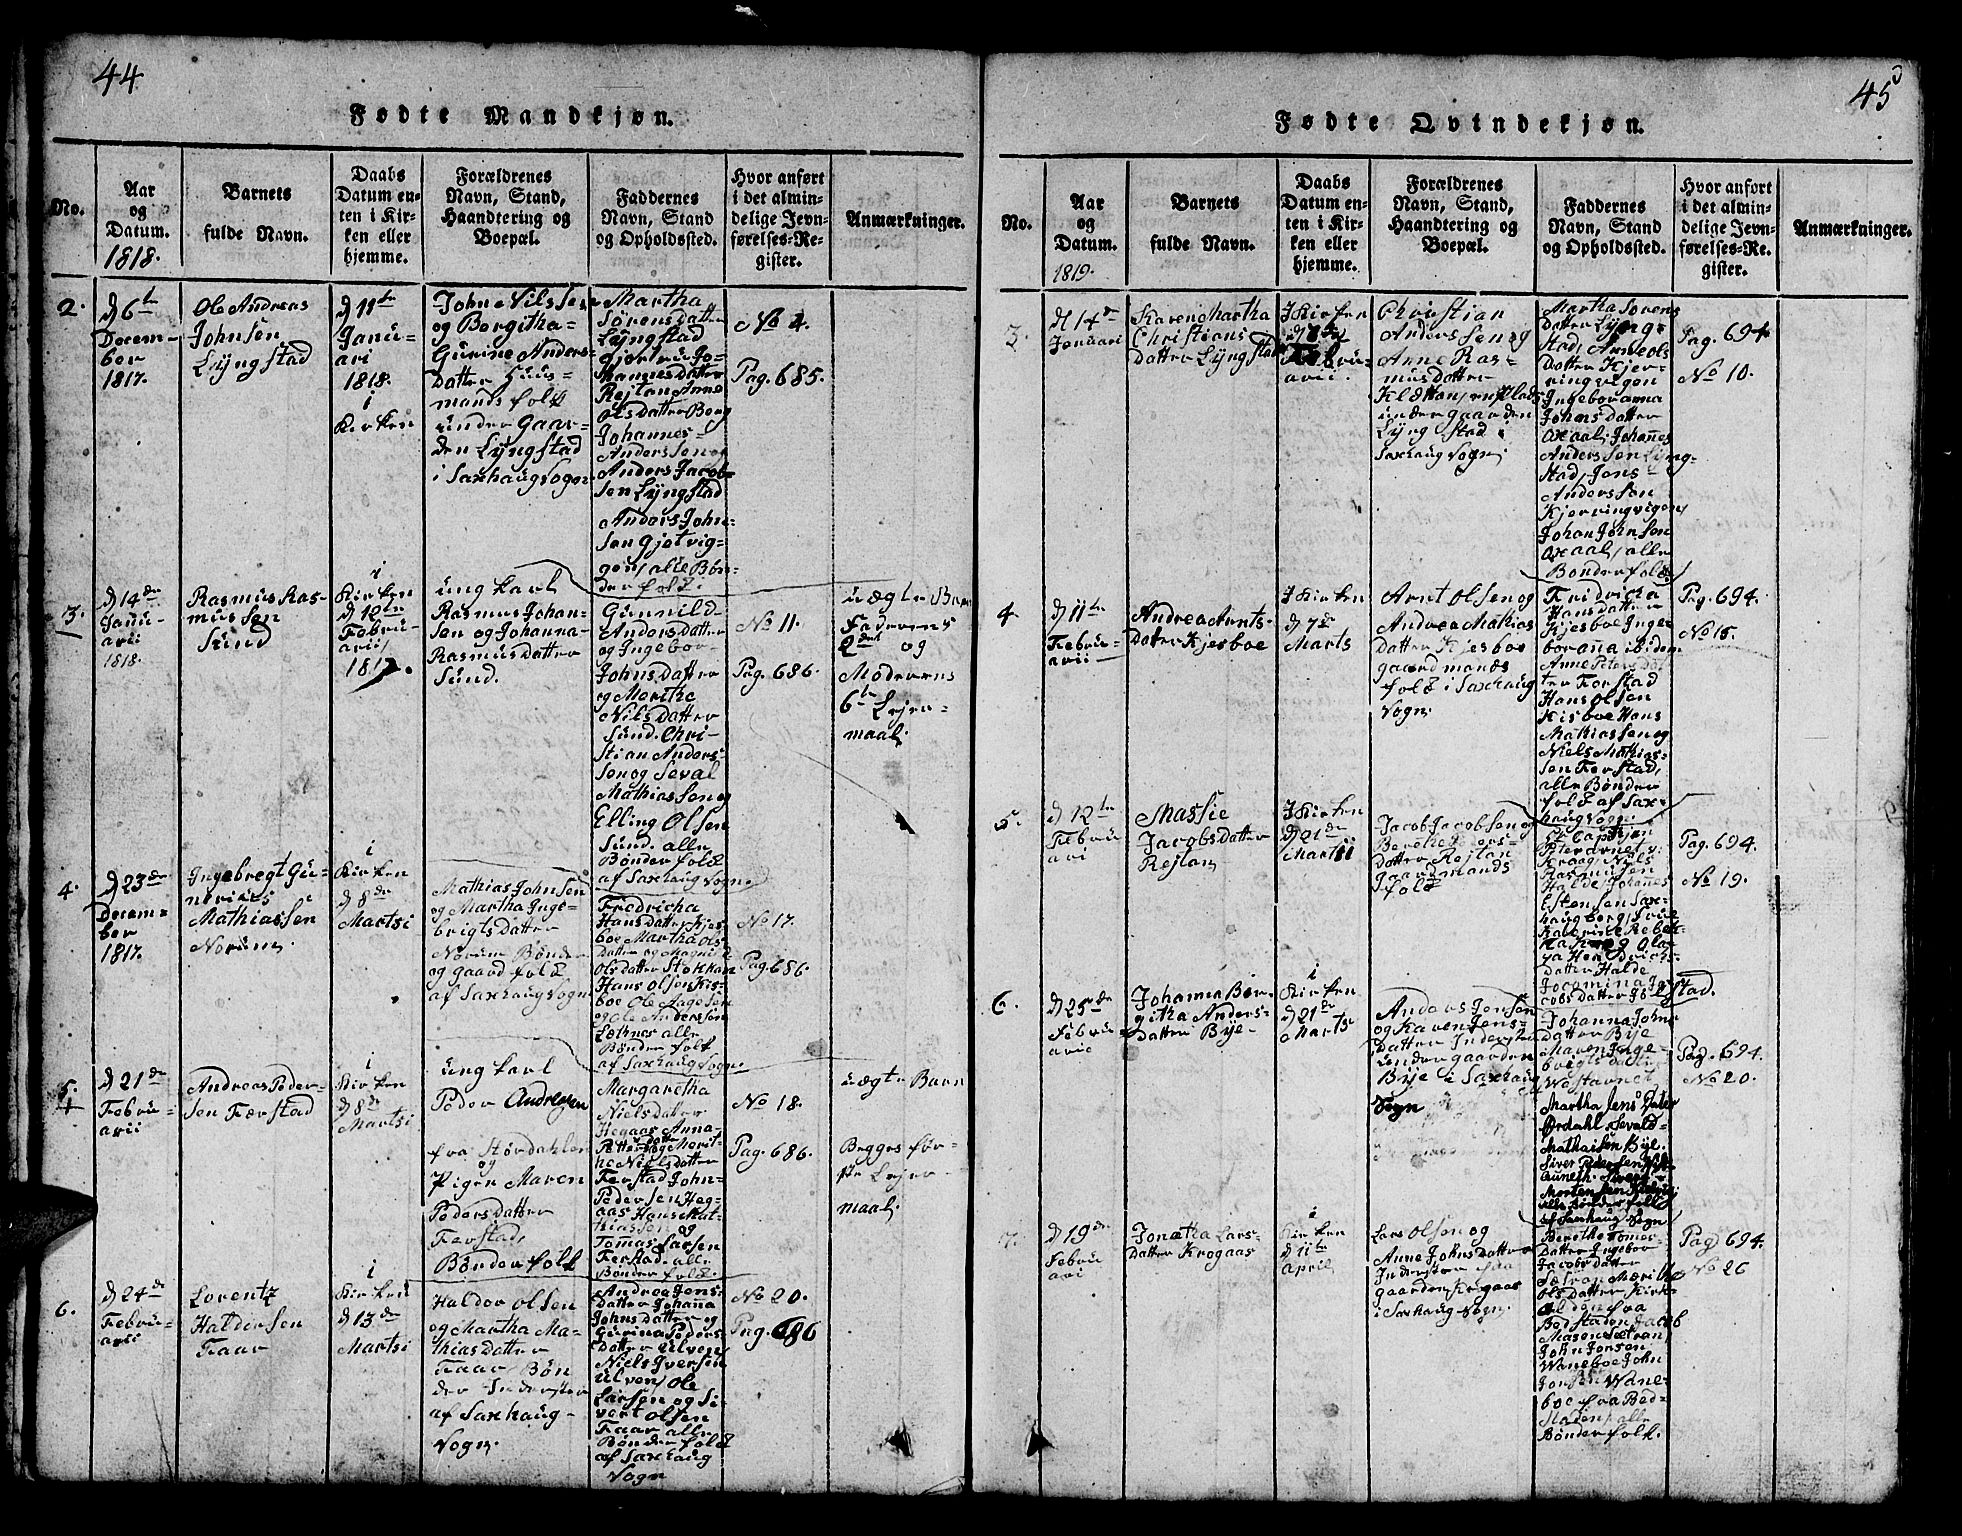 44.
Fødte Mandkjøn.
No.
Aar
og
Datum.
1818.
Barnets
fulde Navn.
Daabs
Datum en-
ten i Kir-
ken eller
hjemme.
Forældrenes
Navn, Stand,
Haandtering og
Boepæl.
Faddernes
Navn, Stand
og Opholdssted.
Hvor anført
i det almin-
delige Jevn-
førelses-Re-
gister.
Anmærkninger.
2.
d 6te
Decem-
ber
1817.
Ole Andreas
Johnsen
Lÿngstad
d 11te
Janu-
ari
1818.
i
Kirken
John Nilssen
og Borgitha-
Gurine Anders-
datter Huus-
mands folk
under Gaar-
den Lÿngstad
i Saxhaug Sogn
Martha
Sörensdatter
Lÿngstad
Gjertru Jo-
hannesdatter
Rejtan Anne
olsdatter Borg
Johannes-
Anderssen og
Anders Jacob-
sen Lÿngstad
Anders John-
sen Gjetvig-
gen, alle Bön-
der folk i
No 4.
Pag. 685.
3.
d 14de
Janu-
arii
1818.
Rasmus Ras-
mussen
Sund
i
Kirken
d 12te
Febru-
arii
1817.
ung karl
Rasmus Johan-
sen og Johanna
Rasmusdatter
Sund.
Gunnild
Andersdatter
og Ingebor-
Johnsdatter
og Marthe
Nilsdatter
Sund. Chri-
stian Anders-
sen og Seval
Mathiassen og
Elling Olsen
Sund. alle
Bönder folk
af Saxhaug Sogn
No 11.
Pag. 686.
uægte Barn
Faderens
2det og
Moderens
6te Lejer-
maal.
4.
d 23de
Decem-
ber
1817.
Ingebregt Gu-
nerius
Mathiassen
Norum.
i
Kirken
d 8de
Martsi
Mathias Johnsen
og Martha Inge-
brigtsdatter
Norum Bönder
og gaard folk
af Saxhaug Sogn
Fredricha
Hansdatter Kjes-
boe Martha ols
datter og Magnild
olsdatter Stokkan
Hans olsen Kis-
boe Ole Aagesen
og ole Anderssen
Letnes alle
Bönder folk
af Saxhaug Sogn
No 17.
Pag. 686.
5.
d 21de
Febru-
arii
Andreas Peder-
sen Færstad
i
Kirken
d 8de
Martsi
ung karl
Peder Andresen
fra Stördahlen
og
Pigen Maren
Pedersdatter
Færstad,
Bönderfolk
Margaretha
Nielsdatter
Hegaas Anna-
Nielsdatter
Færstad John-
Pedersen Heg-
aas Hans Mat-
thiassen og
Tommas Larsen
Ferstad. alle
Bönder folk.
No 18.
Pag. 686.
uægte Barn
Begges för-
ste Lejer-
maal.
6.
d 24de
Febru-
arii
Lorentz
Haldersen
Faar
i
Kirken
d 13de
Martsi
Haldor olsen
og Martha Ma-
thiasdatter
Faar, Bön
der Inderster
af Saxhaug-
Sogn.
Andrea Jens-
datter Johana
Johnsdatter og
Gurina Peders
datter Ulven
Niels Iversen
Ulven, Ole
Larsen og Si-
vert olsen
Faar alle
Bönder folk
af Saxhaug
Sogn
No 20.
Pag. 686
45
Fødte Qvindekjøn.
No.
Aar
og
Datum.
1819.
Barnets
fulde Navn.
Daabs
Datum en-
ten i Kir-
ken eller
hjemme.
Forældrenes
Navn, Stand,
Haandtering og
Boepæl.
Faddernes
Navn, Stand
og Opholdssted.
Hvor anført
i det almin-
delige Jevn-
førelses-Re-
gister.
Anmærkninger.
3.
d 14de
Januari
Karen Martha
Christians
datter Lÿngstad
I Kirken
Febru-
arii.
Christian
Anderssen og
Anne Ras-
musdatter
under gaarden
Lÿngstad i
Saxhaug Sogn.
Martha Sorens
datter Lÿng-
stad, Anne ols
datter Kjer-
ringvigen
Ingeboranna
Johnsdatter
axaal, Johanes
Anderssen Lÿng-
stad, Jens
Anderssen
Kjerringvigen
Johan Johnsen
axaal, alle
Bönderfolk.
Pag. 694
No 10.
4
d 11te
Febru-
arii
Andrea Arnts-
datter Kjesboe
I Kirken
d 7de
Marts
Arnt olsen og
Andrea Mathias
datter Kjesboe
gaardmands
folk i Saxhaug
Sogn.
Fridricha
Hansdatter
Kjesboe Inge-
borana ibidem
Anne Petersdat-
ter Færstad
Hans olsen
Kisboe Hans
Mathiassen og
Niels Mathias-
sen Færstad,
alle Bönder
folk af Sax-
haug Sogn.
Pag. 694.
No 15.
5.
d 12te
Febru
ari
Massie
Jacobsdatter
Rejtan
I Kirken
d 21de
Martii
Jacob Jacobsen og
datter Rejtan
gaardmands
folk
Rasmusen
Halde Johanes
Estensen Sax-
datter Halde
Jacomina Ja-
cobsdatter
Pag. 694.
No 19.
6.
d 25de
Febru
arie
Johanna Bor-
githa Anders-
datter Bÿe
i
Kirken
d 21de
Marts
Anders Jensen
og Karen Jens-
datter Inderster
under gaarden
Bÿe i Saxhaug
Sogn
Johanna Johns
datter Bÿe
Maren Inge-
brigtsdatter
Westavnet
Martha Jens Dater
Ørdahl. Sevald
Mathaisen Bÿe.
alle Bönder folk
af Saxhaug Sogn
Pag. 694.
No 20.
7.
d 19de
Febru
ari
Jonetha Lars-
datter Krogaas
i
Kirken
d 11te
april
Lars olsen og
Anne Johnsdatter
Inderster paa
gaarden Krogaas
i Saxhaug Sogn.
Berethe Tomes-
datter Ingebor
Jacobsdatter
Sætran Maritha
olsdatter Kirk-
alden fra
Bedstaden Jacob
Masone Sætran,
John Jonsen
Waneboe John
Jonsen Wane-
boe fra Bed-
staden, alle
Bönderfolk.
Pag 694.
No 26